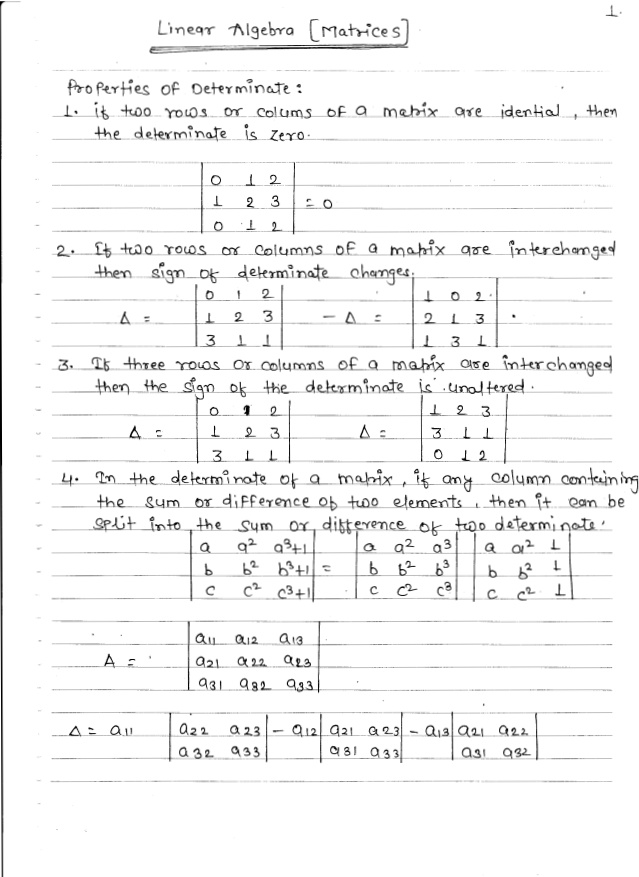 1.
Linear Algebra [Matrices]
Properties of Determinate:
1. if two rows or colums of a matrix are idential, then
the determinate is zero.
| 0 1 2 |
| 1 2 3 | = 0
| 0 1 2 |
2. If two rows or columns of a matrix are interchanged
then sign of determinate changes.
| 0 1 2 | | 1 0 2 |
Δ = | 1 2 3 | - Δ = | 2 1 3 | .
| 3 1 1 | | 1 3 1 |
3. If three rows or columns of a matrix are interchanged
then the sign of the determinate is unaltered.
| 0 1 2 | | 1 2 3 |
Δ = | 1 2 3 | Δ = | 3 1 1 |
| 3 1 1 | | 0 1 2 |
4. In the determinate of a matrix, if any column containing
the sum or difference of two elements, then it can be
split into the sum or difference of two determinate.
| a a² a³+1 | | a a² a³ | | a a² 1 |
| b b² b³+1 | = | b b² b³ | | b b² 1 |
| c c² c³+1 | | c c² c³ | | c c² 1 |
| a11 a12 a13 |
Δ = | a21 a22 a23 |
| a31 a32 a33 |
Δ = a11 | a22 a23 | - a12 | a21 a23 | - a13 | a21 a22 |
| a32 a33 | | a31 a33 | | a31 a32 |